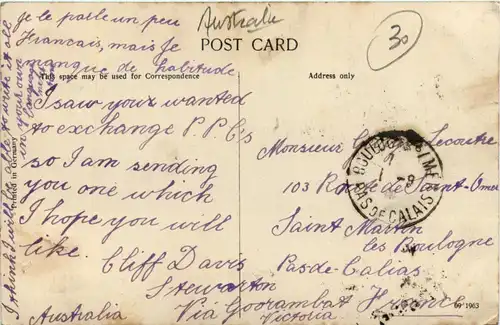 je le parle un peu
Francais, mais je
manque de habitude
Australie
30
POST CARD
This space may be used for Correspondence
Address only
I saw your wanted
to exchange P.P.C's
so I am sending
you one which
I hope you will
like. Cliff Davis
Stewarton
Via Goorambat
Victoria
Australia
I think I will be able to write it all
in your own
Printed in Germany
Monsieur Lecoutre
103 Route de Saint-Omer
Saint Martin
les Boulogne
Pas de Calias
France
PAS DE CALAIS
09 1963